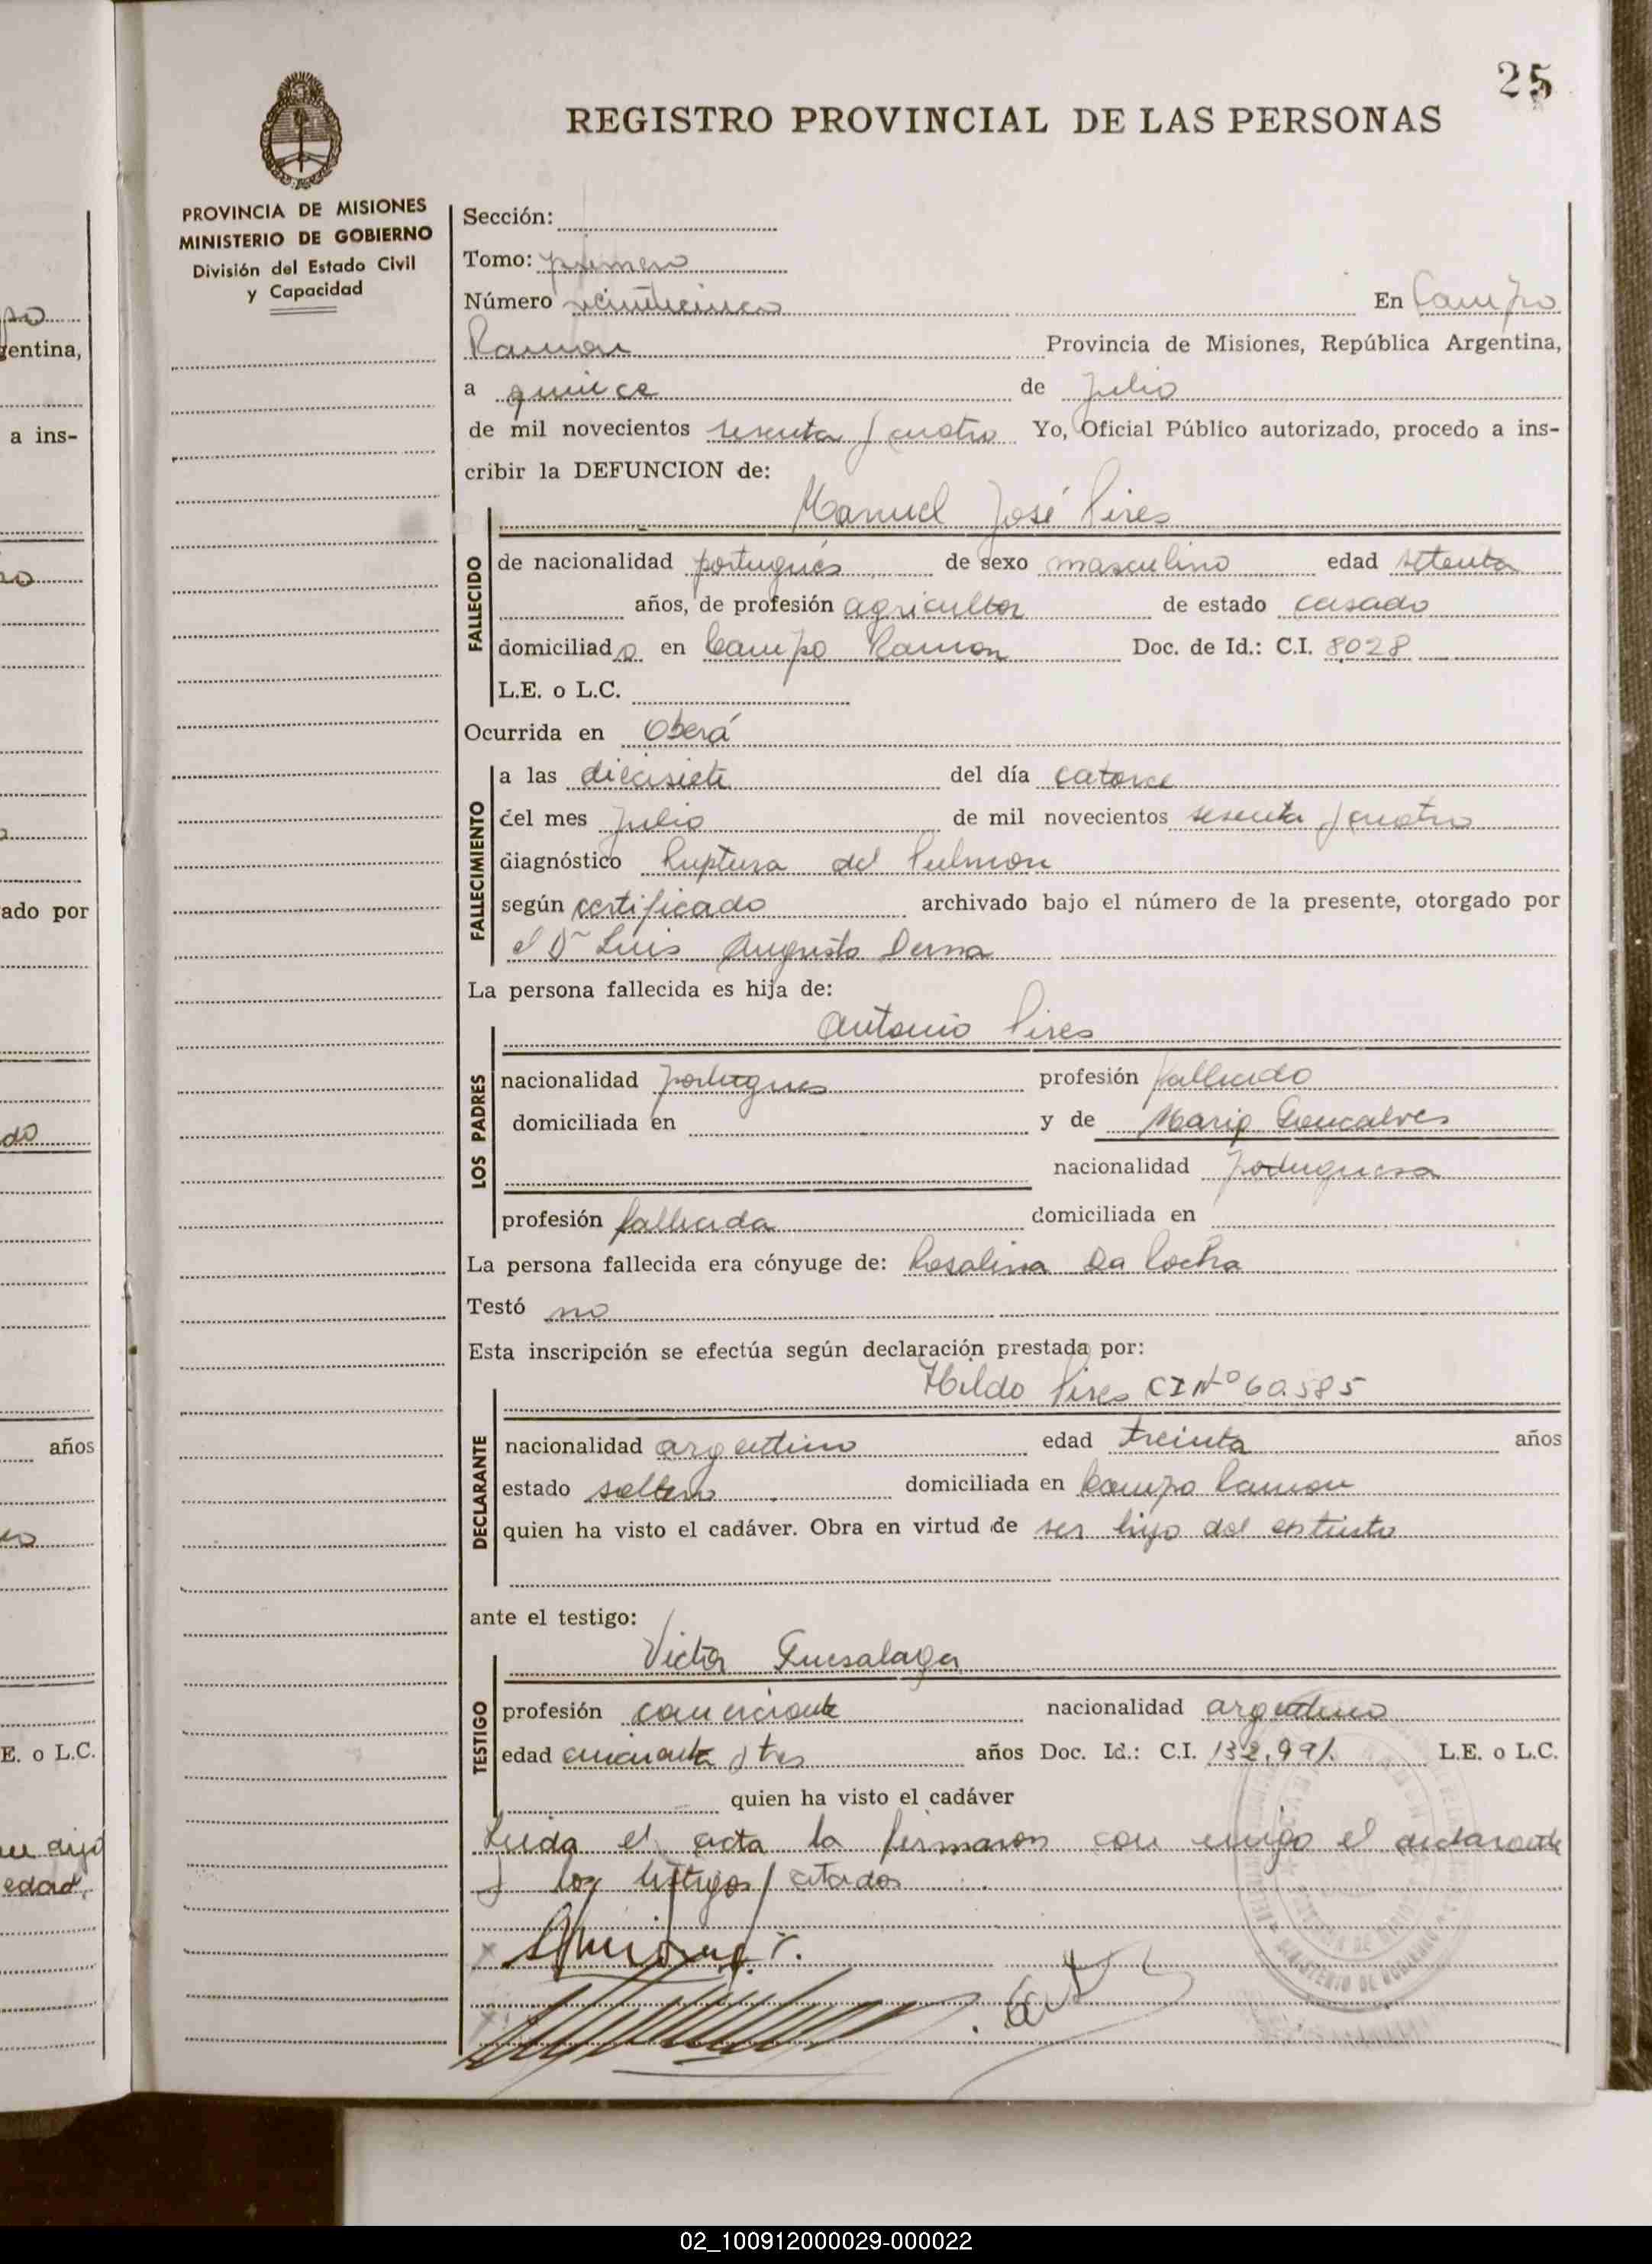 25
REGISTRO PROVINCIAL DE LAS PERSONAS
PROVINCIA DE MISIONES
MINISTERIO DE GOBIERNO
División del Estado Civil
y Capacidad
Sección:
Tomo: primero
Número veinticinco En Campo
Ramon Provincia de Misiones, República Argentina,
a quince de Julio
de mil novecientos sesenta y cuatro Yo, Oficial Público autorizado, procedo a ins-
cribir la DEFUNCION de:
Manuel José Pires
FALLECIDO
de nacionalidad portugués de sexo masculino edad setenta
años, de profesión agricultor de estado casado
domiciliado en Campo Ramon Doc. de Id.: C.I. 8028
L.E. o L.C.
Ocurrida en Oberá
FALLECIMIENTO
a las diecisiete del día catorce
del mes Julio de mil novecientos sesenta y cuatro
diagnóstico Ruptura del Pulmon
según certificado archivado bajo el número de la presente, otorgado por
el Dr Luis Augusto Derna
La persona fallecida es hija de:
Antonio Pires
LOS PADRES
nacionalidad portugues profesión fallecido
domiciliada en y de Maria Goncalves
nacionalidad portuguesa
profesión fallecida domiciliada en
La persona fallecida era cónyuge de: Rosalina Da Rocha
Testó no
Esta inscripción se efectúa según declaración prestada por:
Hildo Pires CI Nº 60.585
DECLARANTE
nacionalidad argentino edad treinta años
estado soltero domiciliada en Campo Ramon
quien ha visto el cadáver. Obra en virtud de ser hijo del extinto
ante el testigo:
Victor Guesalaga
TESTIGO
profesión comerciante nacionalidad argentino
edad cincuenta y tres años Doc. Id.: C.I. 132.991. L.E. o L.C.
quien ha visto el cadáver
Leida el acta la firmaron con migo el declarante
y los testigos citados
MINISTERIO DE GOBIERNO
gentina,
a ins-
ado por
años
E. o L.C.
edad,
02_100912000029-000022